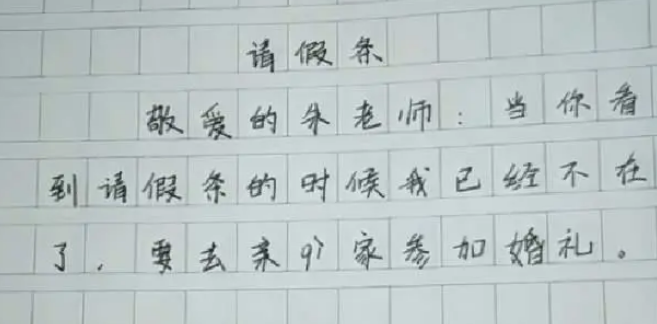 请假条
敬爱的朱老师:当你看
到请假条的时候我已经不在
了,要去亲戚家参加婚礼。